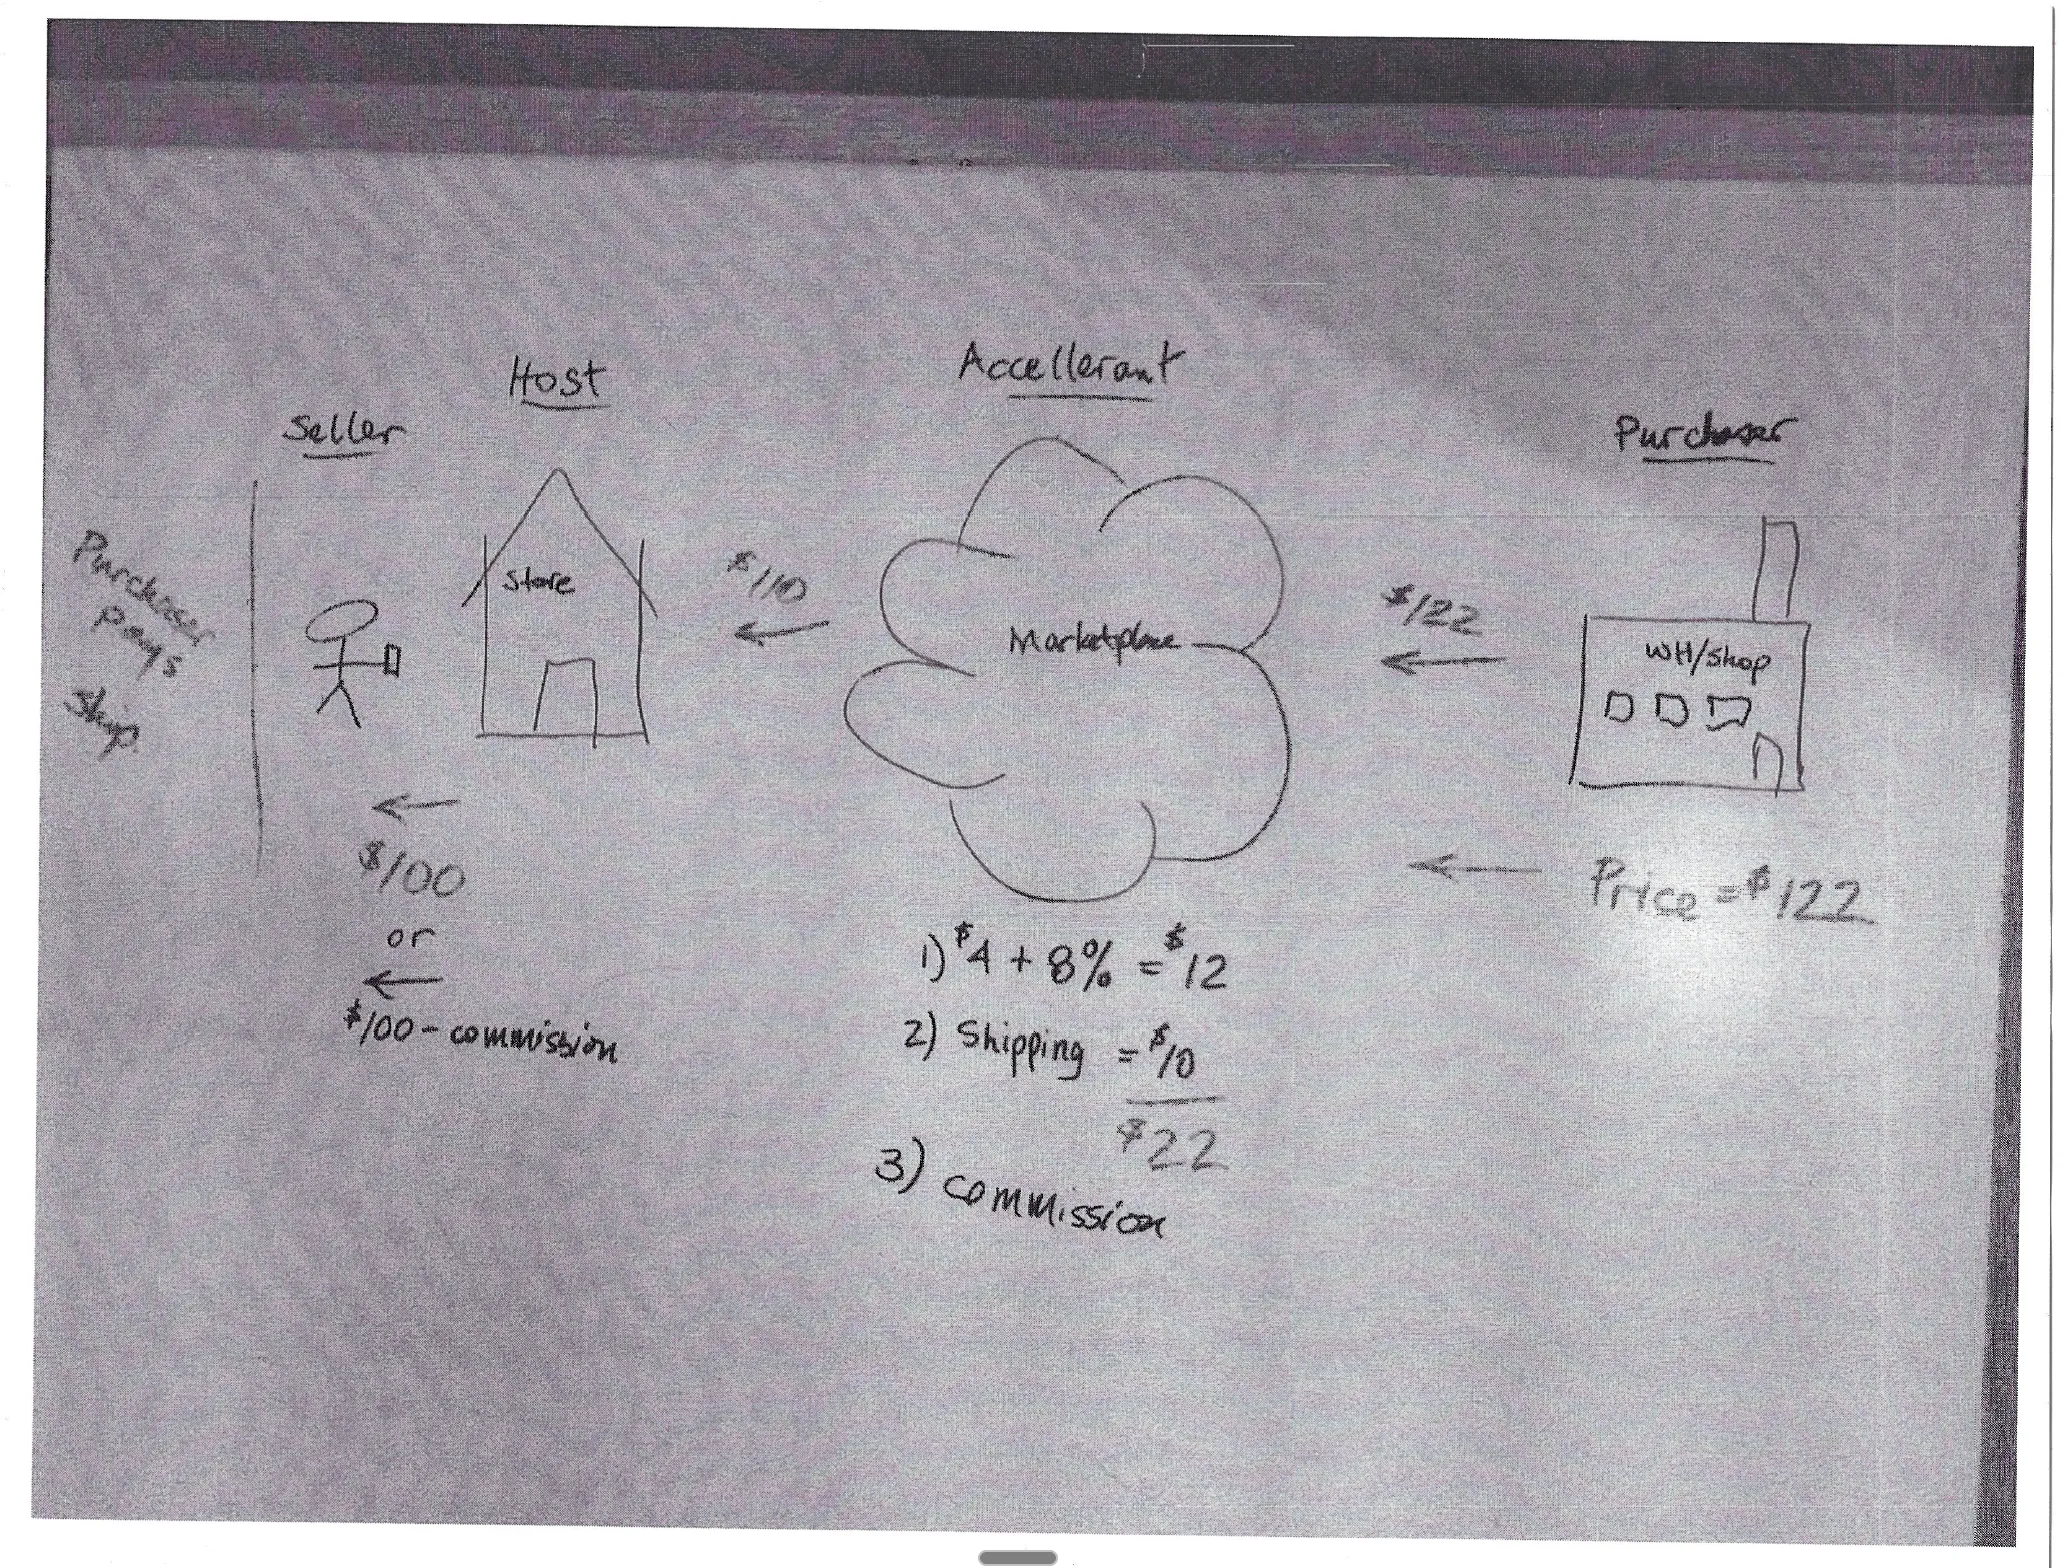 Host
Accellerant
Seller
Purchaser
Purchaser
pays
Ship
Store
$110
Marketplace
$122
WH/Shop
$100
or
$100 - commission
Price = $122
1) $4 + 8% = $12
2) Shipping = $10
$22
3) commission